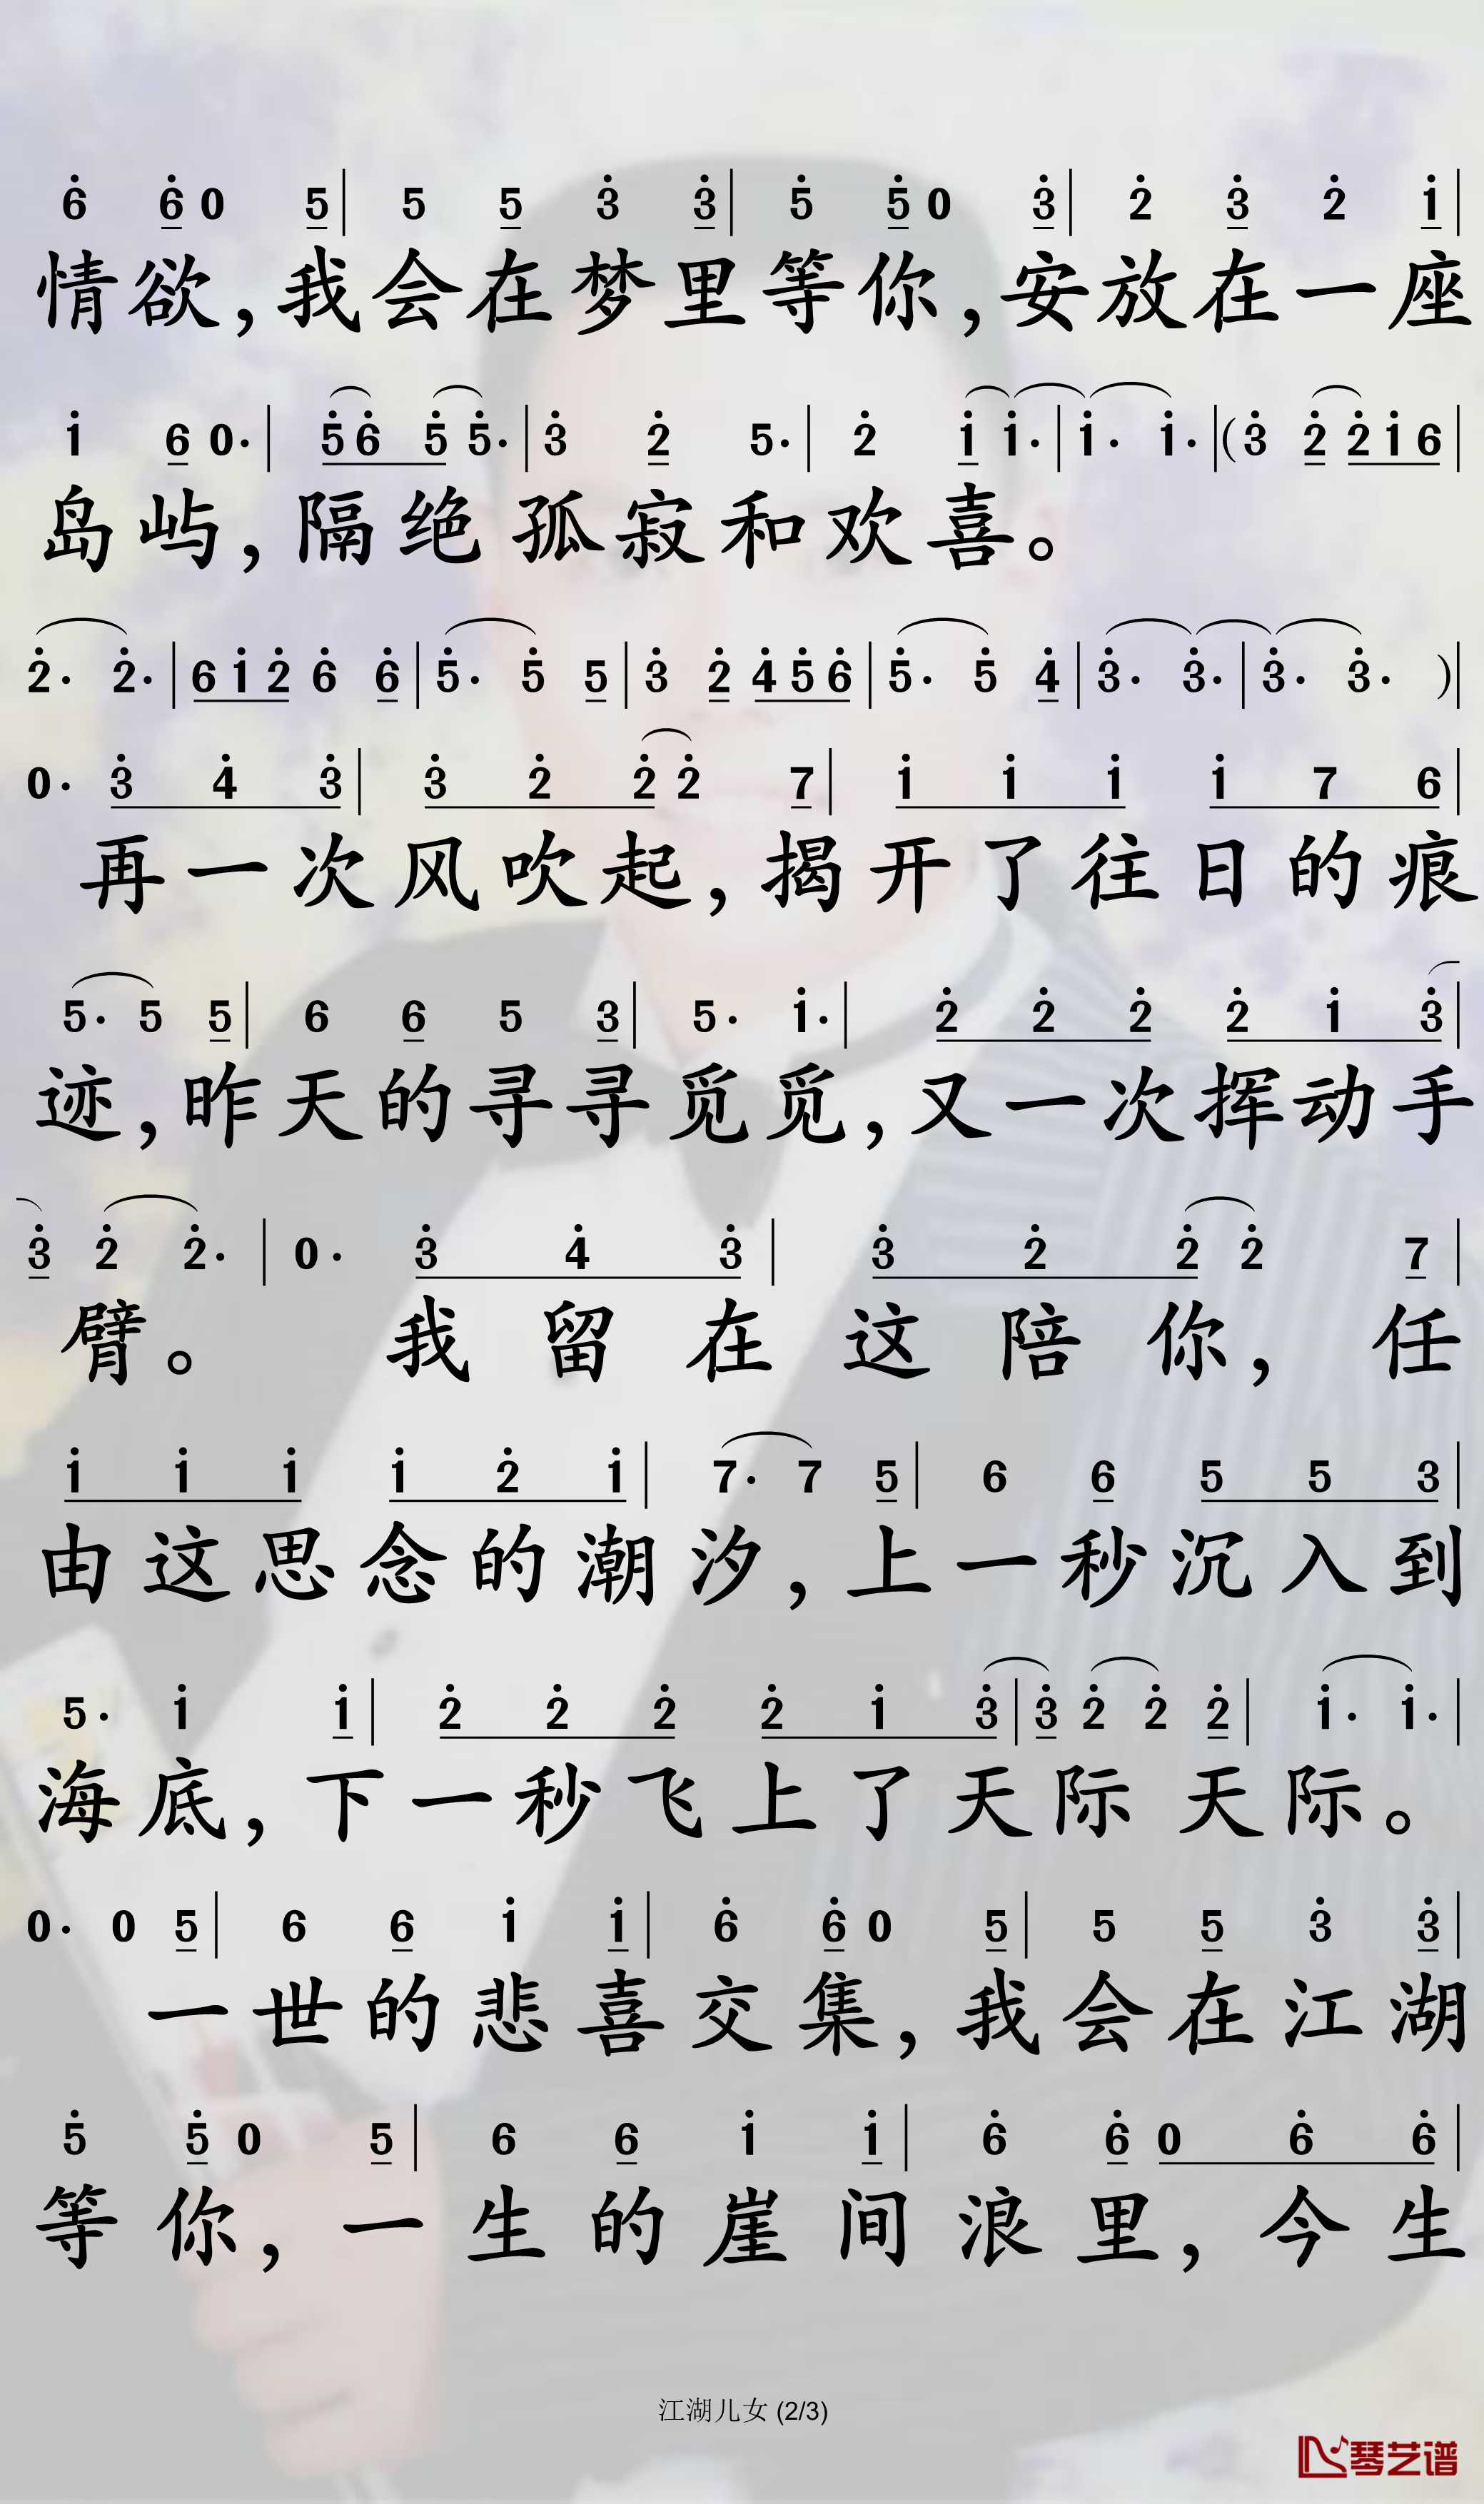 6̇ 6̇ 0 5 | 5 5 3̇ 3̇ | 5̇ 5̇ 0 3̇ | 2̇ 3̇ 2̇ 1̇ |
情欲，我会在梦里等你，安放在一座
1̇ 6 0· | 5̇ 6̇ 5̇ 5̇· | 3̇ 2̇ 5· | 2̇ 1̇ 1̇· | 1̇· 1̇· | (3̇ 2̇ 2̇ 1̇ 6 |
岛屿，隔绝孤寂和欢喜。
2̇· 2̇· | 6 1̇ 2̇ 6̇ 6̇ | 5̇· 5̇ 5 | 3̇ 2̇ 4̇ 5̇ 6̇ | 5̇· 5̇ 4̇ | 3̇· 3̇· | 3̇· 3̇· )|
0· 3̇ 4̇ 3̇ | 3̇ 2̇ 2̇ 2̇ 7 | 1̇ 1̇ 1̇ 1̇ 7 6 |
再一次风吹起，揭开了往日的痕
5· 5 5 | 6 6 5 3 | 5· 1̇· | 2̇ 2̇ 2̇ 2̇ 1̇ 3̇ |
迹，昨天的寻寻觅觅，又一次挥动手
3̇ 2̇ 2̇· | 0· 3̇ 4̇ 3̇ | 3̇ 2̇ 2̇ 2̇ 7 |
臂。 我留在这陪你，任
1̇ 1̇ 1̇ 1̇ 2̇ 1̇ | 7· 7 5 | 6 6 5 5 3 |
由这思念的潮汐，上一秒沉入到
5· 1̇ 1̇ | 2̇ 2̇ 2̇ 2̇ 1̇ 3̇ | 3̇ 2̇ 2̇ 2̇ | 1̇· 1̇· |
海底，下一秒飞上了天际 天际。
0· 0 5 | 6 6 1̇ 1̇ | 6̇ 6̇ 0 5 | 5 5 3̇ 3̇ |
一世的悲喜交集，我会在江湖
5̇ 5̇ 0 5 | 6 6 1̇ 1̇ | 6̇ 6̇ 0 6̇ 6̇ |
等你，一生的崖间浪里，今生
江湖儿女 (2/3)
琴艺谱